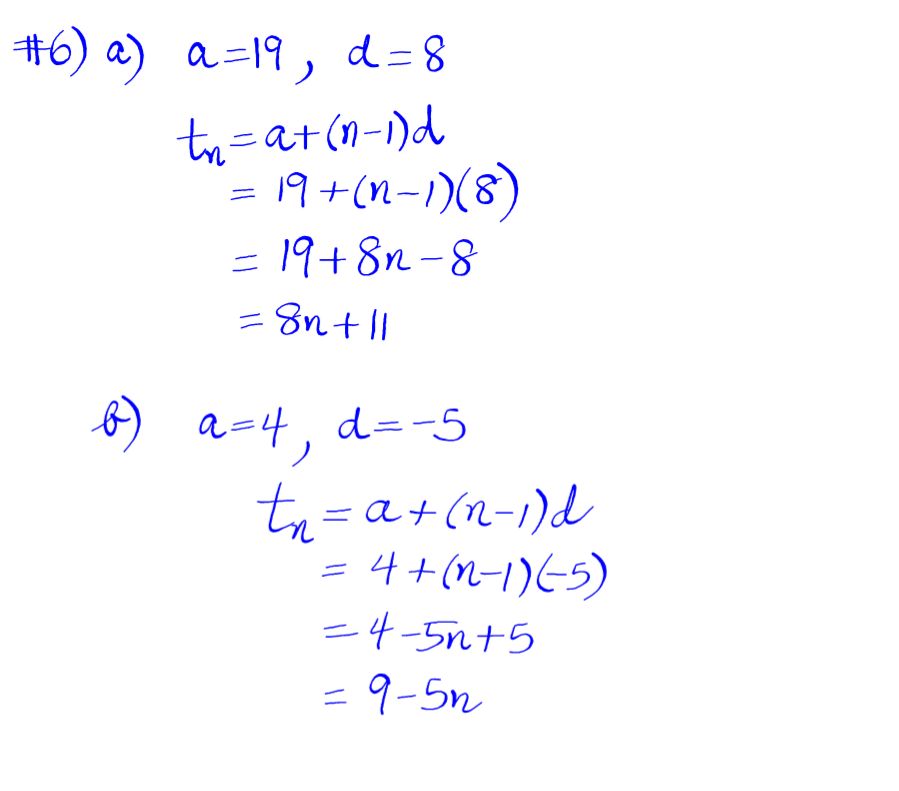 #6) a) a=19, d=8
tₙ=a+(n-1)d
= 19+(n-1)(8)
= 19+8n-8
= 8n+11
b) a=4, d=-5
tₙ=a+(n-1)d
= 4+(n-1)(-5)
=4-5n+5
= 9-5n